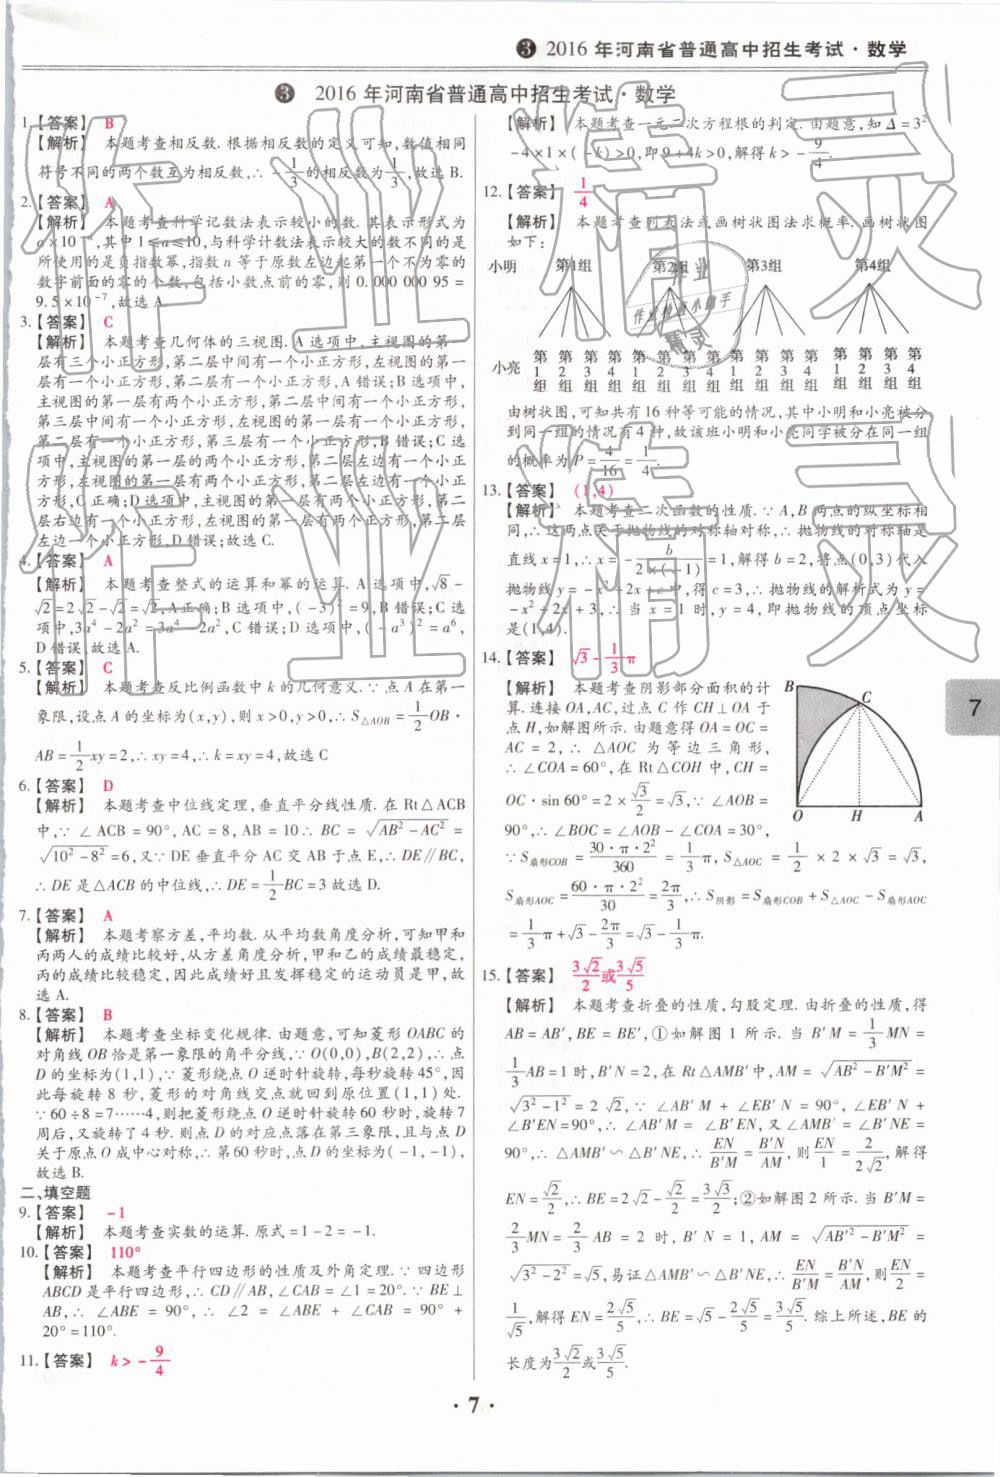 ❸ 2016 年河南省普通高中招生考试·数学
❸ 2016 年河南省普通高中招生考试·数学
1.【答案】 B
【解析】 本题考查相反数. 根据相反数的定义可知,数值相同
符号不同的两个数互为相反数,∴ -1/3的相反数为1/3,故选 B.
2.【答案】 A
【解析】 本题考查科学记数法表示较小的数. 其表示形式为
a×10⁻ⁿ,其中 1≤a≤10,与科学计数法表示较大的数不同的是
所使用的是负指数幂,指数 n 等于原数左边起第一个不为零的
数字前面的零的个数,包括小数点前的零,则 0.000 000 95 =
9.5×10⁻⁷,故选 A.
3.【答案】 C
【解析】 本题考查几何体的三视图. A 选项中,主视图的第一
层有三个小正方形,第二层中间有一个小正方形,左视图的第一
层有两个小正方形,第二层左边有一个小正方形,A 错误;B 选项中,
主视图的第一层有两个小正方形,第二层中间有一个小正方形,
第三层中间有一个小正方形,左视图的第一层有两个小正方形,第
二层左边有一个小正方形,第三层有一个小正方形,B 错误;C 选
项中,主视图的第一层的两个小正方形,第二层左边有一个小正
方形,左视图的第一层的两个小正方形,第二层左边一个小正
方形,C 正确;D 选项中,主视图的第一层有两个小正方形,第二
层右边有一个小正方形,左视图的第一层有两个小正方形,第二层
左边一个小正方形,D 错误,故选 C.
4.【答案】 A
【解析】 本题考查整式的运算和幂的运算. A 选项中,√8 -
√2 = 2√2 - √2 = √2,A 正确;B 选项中,( -3)² = 9,B 错误;C 选
项中,3a⁴ - 2a² = 3a⁴ - 2a²,C 错误;D 选项中,( - a³)² = a⁶,
D 错误,故选 A.
5.【答案】 C
【解析】 本题考查反比例函数中 k 的几何意义. ∵ 点 A 在第一
象限,设点 A 的坐标为(x,y),则 x>0,y>0,∴ S△AOB = 1/2 OB·
AB = 1/2 xy = 2,∴ xy = 4,∴ k = xy = 4,故选 C
6.【答案】 D
【解析】 本题考查中位线定理,垂直平分线性质. 在 Rt△ACB
中,∵ ∠ACB = 90°, AC = 8, AB = 10 ∴ BC = √(AB² - AC²) =
√(10² - 8²) = 6,又∵ DE 垂直平分 AC 交 AB 于点 E,∴ DE∥BC,
∴ DE 是△ACB 的中位线,∴ DE = 1/2 BC = 3 故选 D.
7.【答案】 A
【解析】 本题考察方差,平均数. 从平均数角度分析,可知甲和
丙两人的成绩比较好,从方差角度分析,甲和乙的成绩最稳定,
丙的成绩比较稳定,因此成绩好且发挥稳定的运动员是甲,故
选 A.
8.【答案】 B
【解析】 本题考查坐标变化规律. 由题意,可知菱形 OABC 的
对角线 OB 恰是第一象限的角平分线,∵ O(0,0),B(2,2),∴ 点
D 的坐标为(1,1),∵ 菱形绕点 O 逆时针旋转,每秒旋转 45°,因
此每旋转 8 秒,菱形的对角线交点就回到原位置(1,1)处.
∵ 60÷8 = 7……4,则把菱形绕点 O 逆时针旋转 60 秒时,旋转 7
周后,又旋转了 4 秒. 则点 D 的对应点落在第三象限,且与点 D
关于原点 O 成中心对称,∴ 第 60 秒时,点 D 的坐标为( -1, -1),
故选 B.
二、填空题
9.【答案】 -1
【解析】 本题考查实数的运算. 原式 = 1 - 2 = -1.
10.【答案】 110°
【解析】 本题考查平行四边形的性质及外角定理. ∵ 四边形
ABCD 是平行四边形,∴ CD∥AB,∠CAB = ∠1 = 20°. ∵ BE⊥
AB, ∴ ∠ABE = 90°, ∴ ∠2 = ∠ABE + ∠CAB = 90° +
20° = 110°.
11.【答案】 k > -9/4
【解析】 本题考查一元二次方程根的判定. 由题意,知 Δ = 3²
-4×1×( -k)>0,即 9+4k>0,解得 k> -9/4.
12.【答案】 1/4
【解析】 本题考查列表法或画树状图法求概率. 画树状图
如下:
小明 第1组 第2组 第3组 第4组
小亮 第1组 第2组 第3组 第4组 第1组 第2组 第3组 第4组 第1组 第2组 第3组 第4组 第1组 第2组 第3组 第4组
由树状图,可知共有 16 种等可能的情况,其中小明和小亮被分
到同一组的情况有 4 种,故该班小明和小亮同学被分在同一组
的概率为 P = 4/16 = 1/4.
13.【答案】 (1,4)
【解析】 本题考查二次函数的性质. ∵ A,B 两点的纵坐标相
同,∴ 这两点关于抛物线的对称轴对称,∴ 抛物线的对称轴是
直线 x = 1,∴ x = - b/(2×( -1)) = 1,解得 b = 2,将点(0,3)代入
抛物线 y = -x² + 2x + c 中,得 c = 3,∴ 抛物线的解析式为 y =
-x² + 2x + 3,∴ 当 x = 1 时, y = 4, 即抛物线的顶点坐标
是(1,4).
14.【答案】 √3 - 1/3 π
【解析】 本题考查阴影部分面积的计
算. 连接 OC,AC,过点 C 作 CH⊥OA 于
点 H,如解图所示. 由题意得 OA = OC =
AC = 2, ∴ △AOC 为等边三角形,
∴ ∠COA = 60°, 在 Rt△COH 中, CH =
OC·sin 60° = 2 × √3/2 = √3, ∵ ∠AOB =
90°,∴ ∠BOC = ∠AOB - ∠COA = 30°,
∵ S扇形COB = 30·π·2²/360 = 1/3 π, S△AOC = 1/2 × 2 × √3 = √3,
S扇形AOC = 60·π·2²/30 = 2π/3,∴ S阴影 = S扇形COB + S△AOC - S扇形AOC
= 1/3 π + √3 - 2π/3 = √3 - 1/3 π.
B C O H A
15.【答案】 3√2/2 或 3√5/5
【解析】 本题考查折叠的性质,勾股定理. 由折叠的性质,得
AB = AB′,BE = BE′,①如解图 1 所示. 当 B′M = 1/3 MN =
1/3 AB = 1 时,B′N = 2,在 Rt△AMB′中,AM = √(AB² - B′M²) =
√(3² - 1²) = 2√2, ∵ ∠AB′M + ∠EB′N = 90°, ∠EB′N +
∠B′EN = 90°,∴ ∠AB′M = ∠B′EN,又∠AMB′ = ∠B′NE =
90°,∴ △AMB′∽△B′NE,∴ EN/B′M = B′N/AM, 则 EN/1 = 2/(2√2), 解得
EN = √2/2,∴ BE = 2√2 - √2/2 = 3√3/2;②如解图 2 所示. 当 B′M =
2/3 MN = 2/3 AB = 2 时, B′N = 1, AM = √(AB′² - B′M²) =
√(3² - 2²) = √5,易证△AMB′∽△B′NE,∴ EN/B′M = B′N/AM,则 EN/2 =
1/√5,解得 EN = 2√5/5,∴ BE = √5 - 2√5/5 = 3√5/5. 综上所述,BE 的
长度为 3√2/2 或 3√5/5.
7
· 7 ·
作业精灵
作业精灵
作业
作业检查小助手
精灵